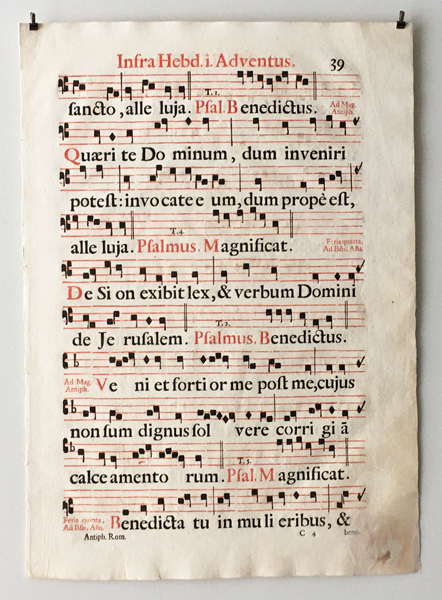 Infra Hebd. i. Adventus. 39
T. 1.
sancto, alle luja. Psal. Benedictus. Ad Mag. Antiph.
Quæri te Do minum, dum inveniri
potest: invo cate e um, dum propè est,
T. 4
alle luja. Psalmus. Magnificat. Feria quarta, Ad Bñs. Aña.
De Si on exibit lex, & verbum Domini
T. 2.
de Je rusalem. Psalmus. Benedictus.
Ad Mag. Antiph. Ve ni et forti or me post me, cujus
non sum dignus sol vere corri gi ã
T. 5.
calce amento rum. Psal. Magnificat.
Feria quinta, Ad Bñs. Aña. Benedicta tu in mu li eribus, &
Antiph. Rom. C 4 bene-